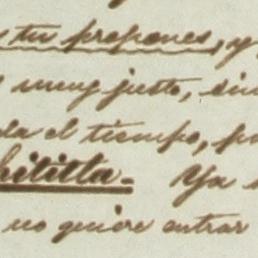 tu propones, y
muy justo, sin
da el tiempo, pa
hititla. Ya
no quiere entrar